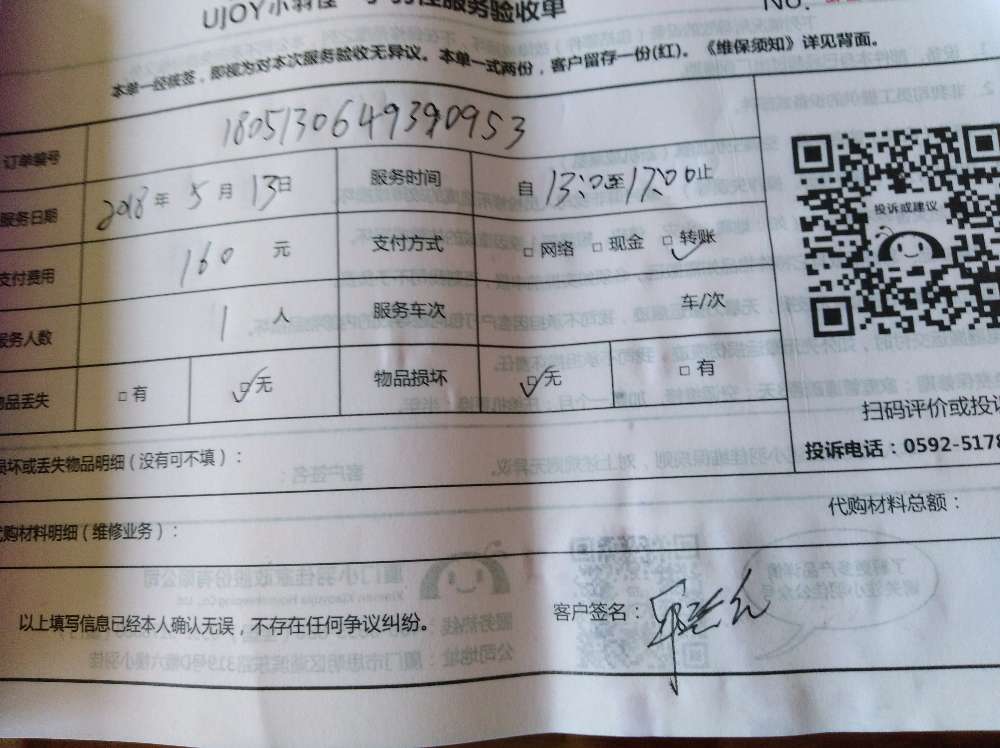 UJOY小羽佳 小羽佳服务验收单
NO.
本单一经核签，即视为对本次服务验收无异议。本单一式两份，客户留存一份(红)。《维保须知》详见背面。
订单编号 1805130649390953
服务日期 2018 年 5 月 13 日 服务时间 自 13:00 至 17:00 止
支付费用 160 元 支付方式 □网络 □现金 □转账
服务人数 1 人 服务车次 车/次
物品丢失 □有 □无 物品损坏 □无 □有
投诉或建议
扫码评价或投诉
投诉电话：0592-5178
损坏或丢失物品明细（没有可不填）：
代购材料明细（维修业务）： 代购材料总额：
以上填写信息已经本人确认无误，不存在任何争议纠纷。 客户签名：